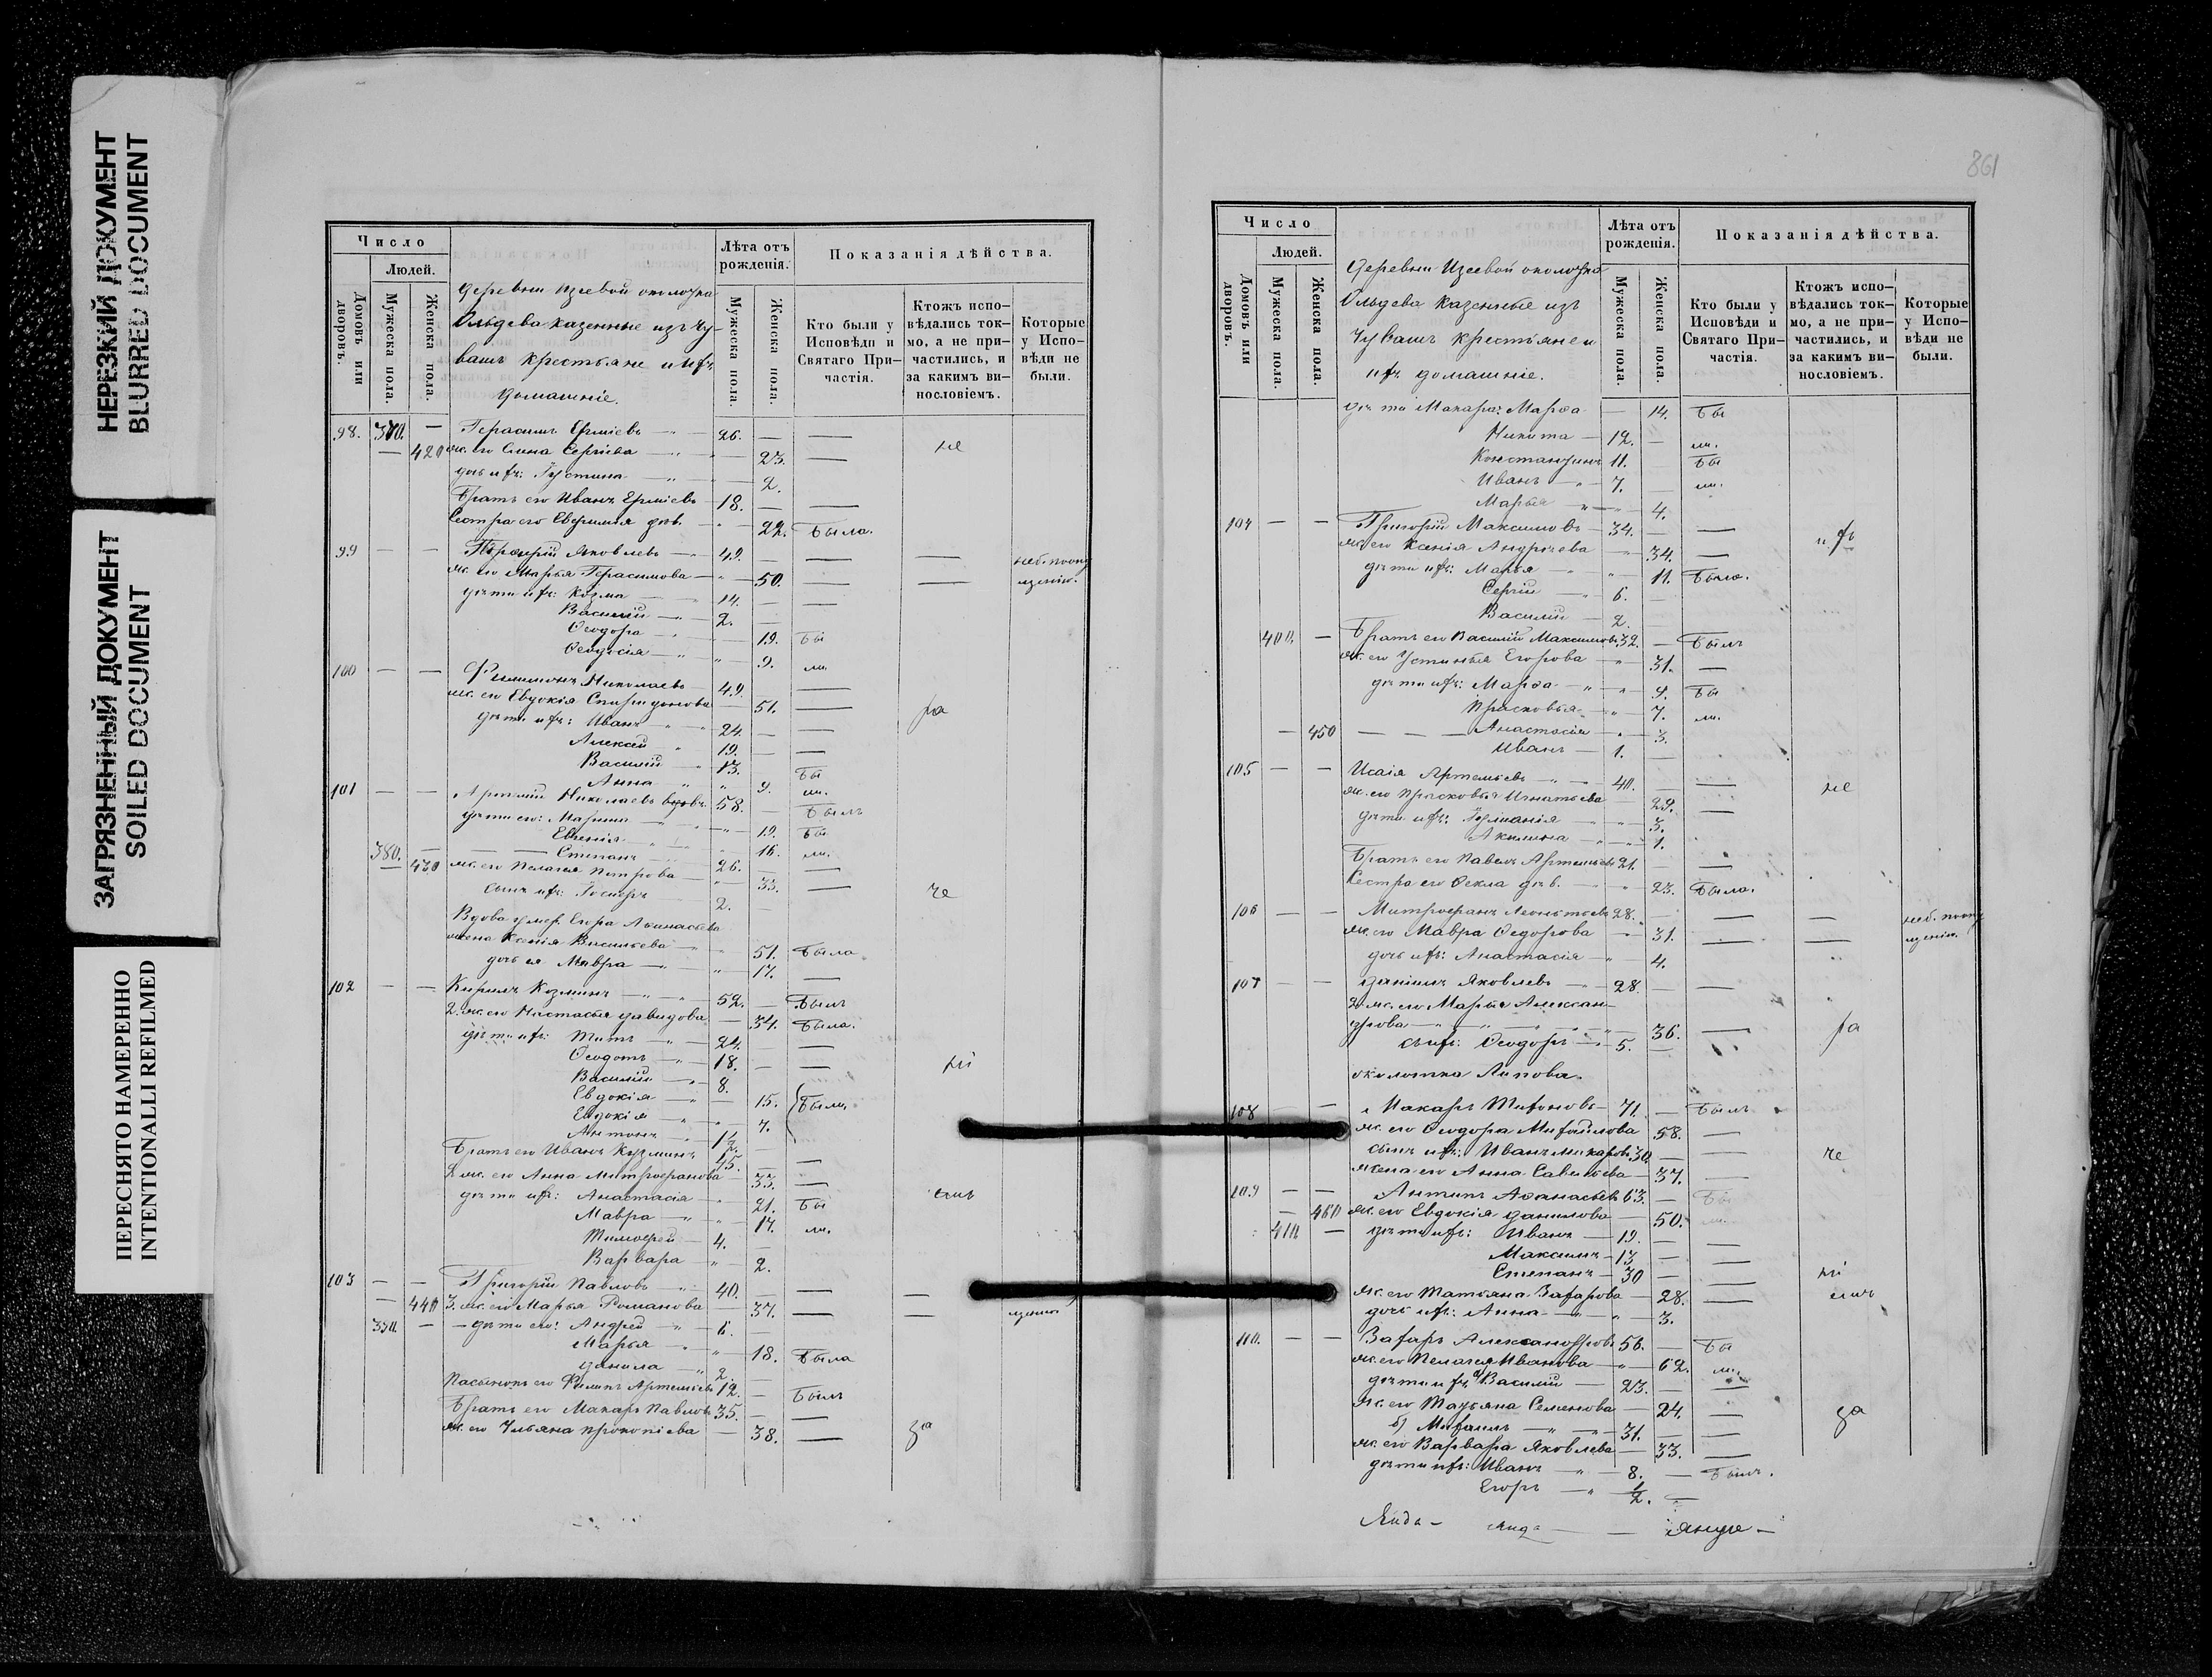 НЕРЕЗКИЙ ДОКУМЕНТ
BLURRED DOCUMENT
ЗАГРЯЗНЕННЫЙ ДОКУМЕНТ
SOILED DOCUMENT
ПЕРЕСНЯТО НАМЕРЕННО
INTENTIONALLI REFILMED
Число
Людей.
Домовъ или дворовъ.
Мужеска пола.
Женска пола.
Деревни Изеевой околотка
Ольдева казенные изъ Чу-
вашъ крестьяне и ихъ
домашніе.
Лѣта отъ рожденія.
Мужеска пола.
Женска пола.
Показанія дѣйства.
Кто были у Исповѣди и Святаго При-частія.
Ктожъ испо-вѣдались ток-мо, а не при-частились, и за какимъ ви-нословіемъ.
Которые у Испо-вѣди не были.
98. 370. — Герасимъ Ерміевъ — 26. — —
— 420 ж. его Анна Сергіева — 23. — не
дочь ихъ: Іустина 2.
Братъ его Иванъ Ерміевъ — 18. — —
Сестра его Евфимія дѣв. — 22. Была.
99 — — Порфирій Яковлевъ — 49. — — — неб. по опу
ж. его Марья Герасимова — 50. — — щенію.
дѣти ихъ: Козма 14. — —
Василій — 2. —
Ѳеодора 19. Бы
Ѳеодосія — 9. ли.
100 — — Филимонъ Николаевъ 49. — —
ж. его Евдокія Спиридонова 51. — ра
дѣти ихъ: Иванъ 24. — —
Алексѣй 19. — —
Василій 13. Бы
Анна 9. ли.
101 — — Артемій Николаевъ вдовъ 58. — Былъ
дѣти его: Марина 19. Бы
Евгенія 16. ли.
380. — Степанъ 26. — —
— 430 ж. его Пелагея Петрова — 33. — че
сынъ ихъ: 2. —
Вдова умер. Егора Аѳанасьева
жена Ксенія Васильева 51. Была.
дочь ея Мавра — 17. —
102 — — Кирилъ Козминъ — 52. — Былъ
2. ж. его Настасья Давидова — 34. Была.
дѣти ихъ: Титъ 24. —
Ѳеодотъ 18. — —
Василій 8. ні
Евдокія 15. Были.
Евдокія 7.
Антонъ 1/2.
Братъ его Иванъ Кузминъ 45. — —
2 ж. его Анна Митрофанова — 33. —
дѣти ихъ: Анастасія — 21. Бы емъ
Мавра — 17. ли.
Тимофей 4. —
Варвара 2.
103 — — Григорій Павловъ 40. — — —
— 440 3. ж. его Марья Романова — 37. — — щенію
390. — — дѣти его: Андрей 6. —
Марья 18. Была
Данила 2. —
Пасынокъ его Филипъ Артемьевъ 12. — Былъ
Братъ его Макаръ Павловъ 35. — —
ж. его Ульяна Прокопіева — 38. — за
861
Число
Людей.
Домовъ или дворовъ.
Мужеска пола.
Женска пола.
Деревни Изеевой околотка
Ольдева казенные изъ
Чувашъ крестьяне и
ихъ домашніе.
Лѣта отъ рожденія.
Мужеска пола.
Женска пола.
Показанія дѣйства.
Кто были у Исповѣди и Святаго При-частія.
Ктожъ испо-вѣдались ток-мо, а не при-частились, и за какимъ ви-нословіемъ.
Которые у Испо-вѣди не были.
дѣти Макара: Марѳа — 14. Бы
Никита — 12. — ли.
Константинъ 11. Бы
Иванъ 7. — ли.
Марья 4.
104 — — Григорій Максимовъ — 34. — —
ж. его Ксенія Андреева — 34. — ихъ
дѣти ихъ: Марья — 11. Была.
Сергій 6. —
Василій — 2. —
400. — Братъ его Василій Максимовъ 32. — Былъ
ж. его Устинья Егорова 31. —
дѣти ихъ: Марѳа 9. Бы
Прасковья 7. ли.
— 450 — — — Анастасія 3.
Иванъ — 1. —
105 — — Исаія Артемьевъ 40. — — не
ж. его Прасковья Игнатьева 29. —
дѣти ихъ: 3.
Акилина 1.
Братъ его Павелъ Артемьевъ 21. —
Сестра его Ѳекла дѣв. — 23. Была.
106 — — Митрофанъ Леонтьевъ 28. — — — неб. по опу
ж. его Мавра Ѳедорова — 31. — — щенію.
дочь ихъ: Анастасія 4.
107 — — Данилъ Яковлевъ — 28. — —
2 ж. его Марья Алексан-
дрова — 36. — ра
сынъ ихъ: Ѳеодоръ — 5. —
околотка Липова.
108 — — Макаръ Тихоновъ — 71. — Былъ
ж. его Ѳеодора Михайлова 58. —
сынъ ихъ: Иванъ Макаровъ 30. — — че
жена его Анна Савельева — 37. —
109 — — Антипъ Аѳанасьевъ 63. — Бы
— 460 ж. его Евдокія Данилова — 50. ли.
410. — дѣти ихъ: Иванъ — 19. — —
Максимъ — 13 — —
Степанъ — 30 — — ні
ж. его Татьяна Захарова — 28. — емъ
дочь ихъ: Анна 3.
110. — — Захаръ Александровъ 56. — Бы
ж. его Пелагея Иванова — 62. ли.
дѣти ихъ: а) Василій — 23. — —
ж. его Татьяна Семенова — 24. — да
б) Михаилъ — 31. — —
ж. его Варвара Яковлева — 33. —
дѣти ихъ: Иванъ — 8. — Былъ.
Егоръ 1/2. —